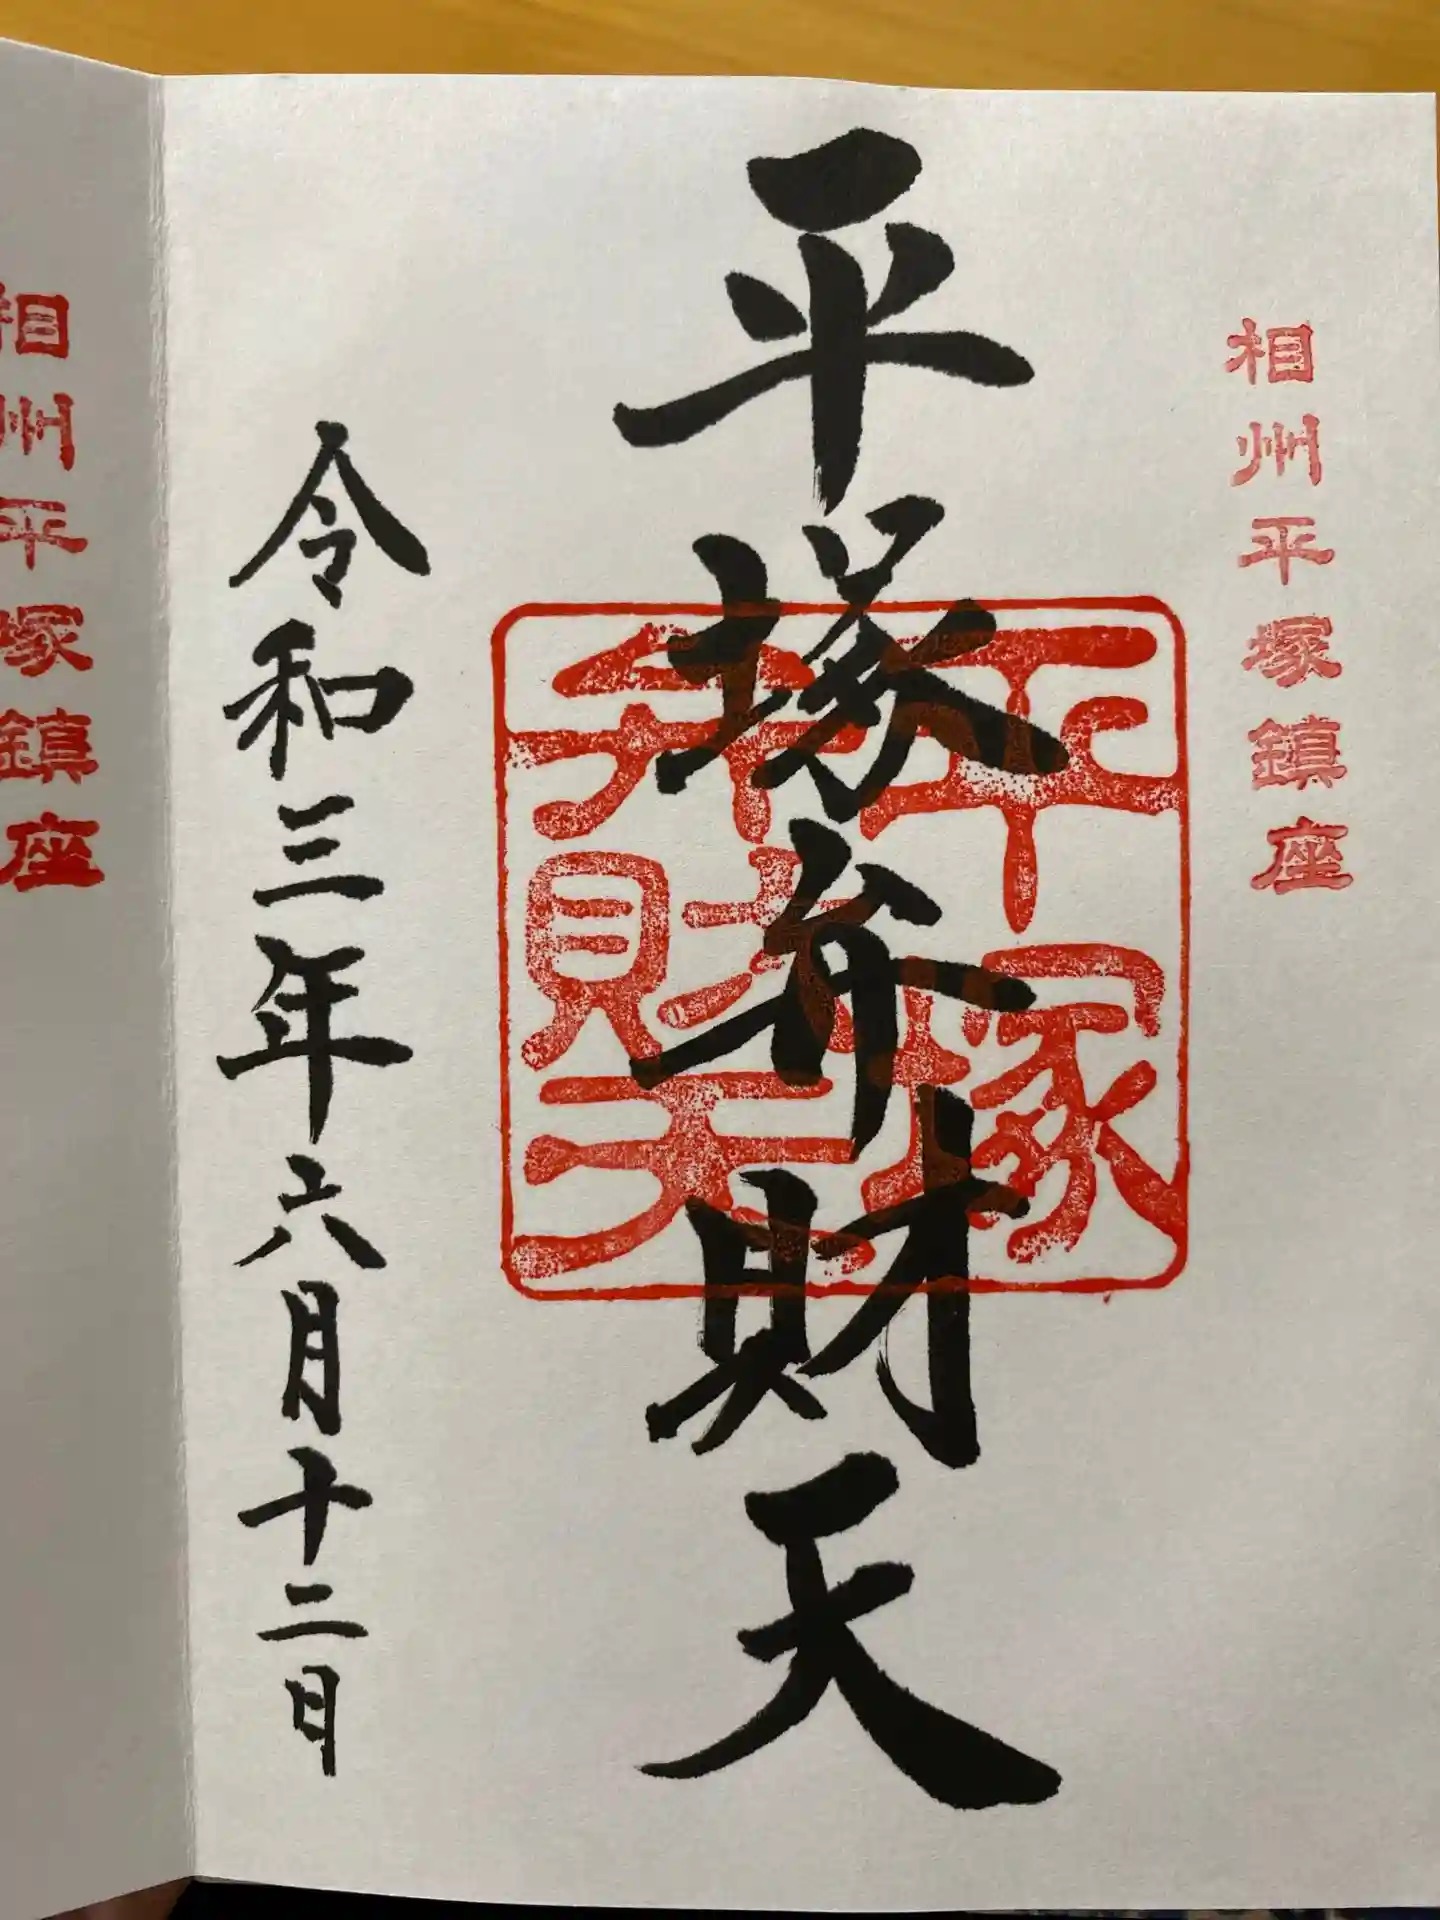 相州平塚鎮座
平塚弁財天
平塚
弁財天
令和三年六月十二日
相州平塚鎮座